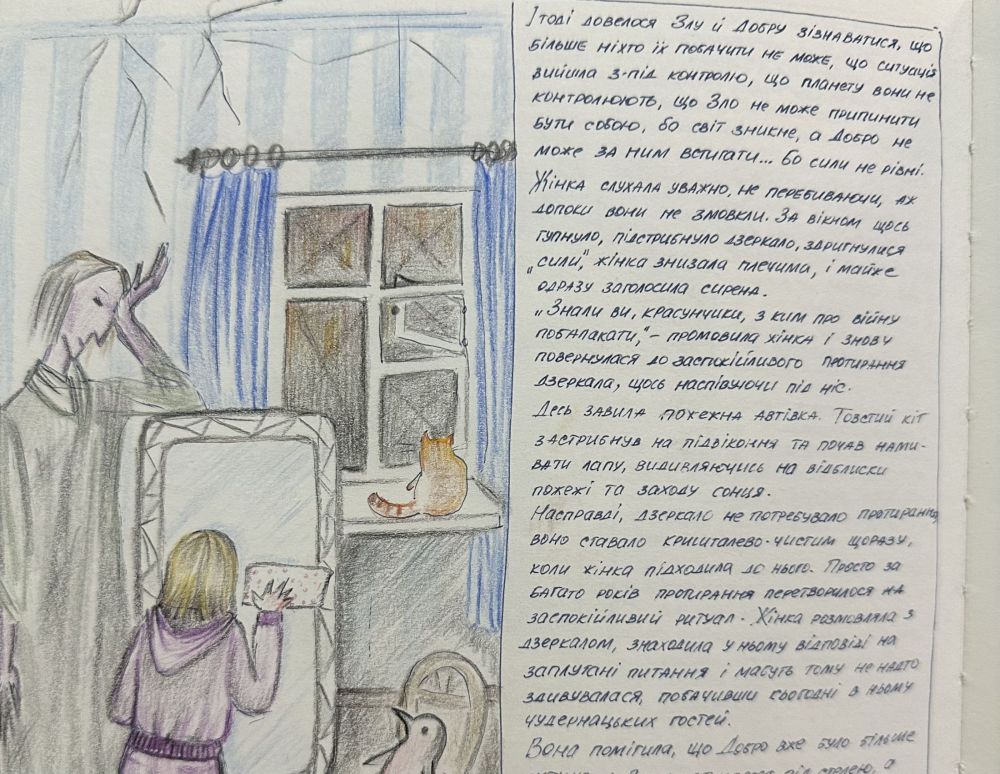 І тоді довелося Злу й Добру зізнаватися, що
більше ніхто їх побачити не може, що ситуація
вийшла з-під контролю, що планету вони не
контролюють, що Зло не може припинити
бути собою, бо світ зникне, а Добро не
може за ним встигати... бо сили не рівні.
Жінка слухала уважно, не перебиваючи, аж
допоки вони не змовкли. За вікном щось
гупнуло, підстрибнуло дзеркало, здригнулися
„сили," жінка знизала плечима, і майже
одразу заголосила сирена.
„Знали ви, красунчики, з ким про війну
побалакати," – промовила жінка і знову
повернулася до заспокійливого протирання
дзеркала, щось наспівуючи під ніс.
Десь завила пожежна автівка. Товстий кіт
застрибнув на підвіконня та почав нами-
вати лапу, видивляючись на відблиски
пожежі та заходу сонця.
Насправді, дзеркало не потребувало протирання,
воно ставало кришталево-чистим щоразу,
коли жінка підходила до нього. Просто за
багато років протирання перетворилося на
заспокійливий ритуал. Жінка розмовляла з
дзеркалом, знаходила у ньому відповіді на
заплутані питання і мабуть тому не надто
здивувалася, побачивши сьогодні в ньому
чудернацьких гостей.
Вона помітила, що Добро вже було більше